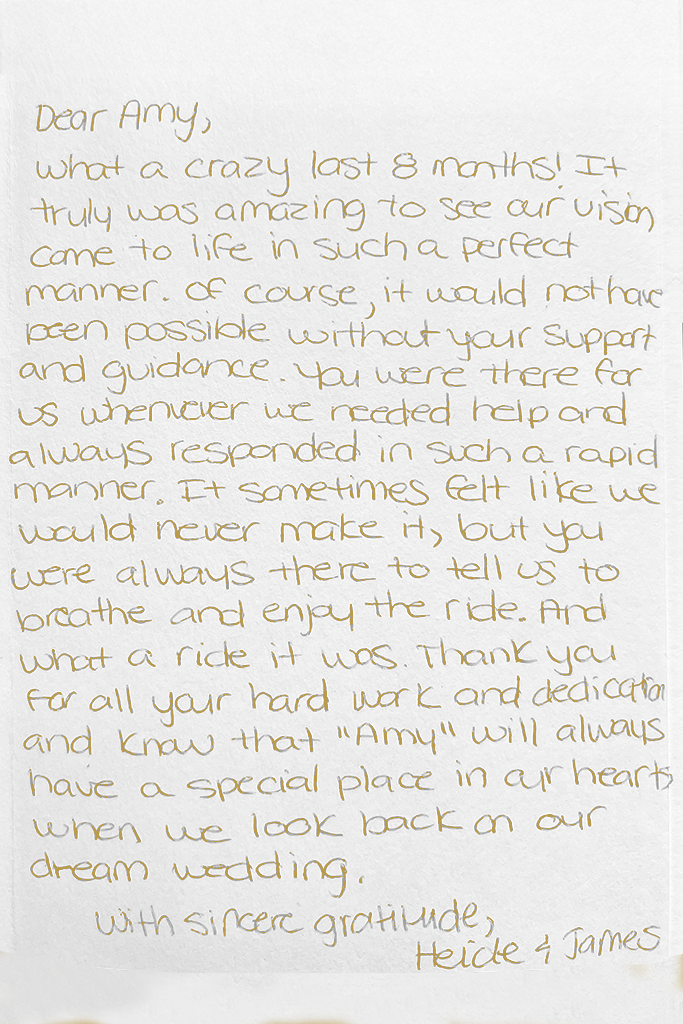 Dear Amy,
What a crazy last 8 months! It
truly was amazing to see our vision
come to life in such a perfect
manner. Of course, it would not have
been possible without your support
and guidance. You were there for
us whenever we needed help and
always responded in such a rapid
manner. It sometimes felt like we
would never make it, but you
were always there to tell us to
breathe and enjoy the ride. And
what a ride it was. Thank you
for all your hard work and dedication
and know that "Amy" will always
have a special place in our hearts
when we look back on our
dream wedding.
With sincere gratitude,
Heide & James